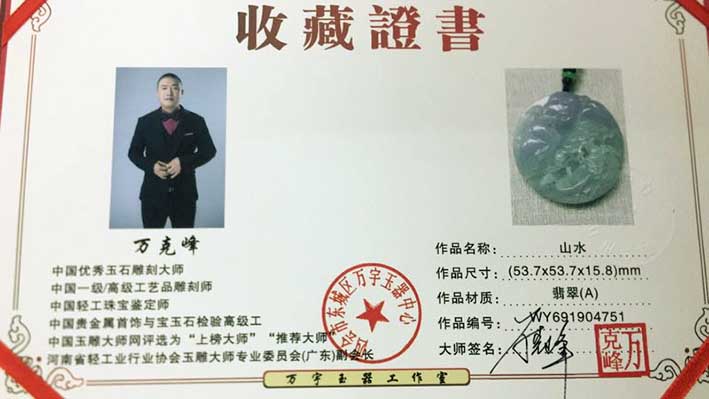 收藏證書
万克峰
中国优秀玉石雕刻大师
中国一级/高级工艺品雕刻师
中国轻工珠宝鉴定师
中国贵金属首饰与宝玉石检验高级工
中国玉雕大师网评选为“上榜大师”“推荐大师”
河南省轻工业行业协会玉雕大师专业委员会(广东)副会长
会市东城区万宇玉器中心
作品名称: 山水
作品尺寸: (53.7x53.7x15.8)mm
作品材质: 翡翠(A)
作品编号: WY691904751
大师签名:
万克峰
万宇玉器工作室